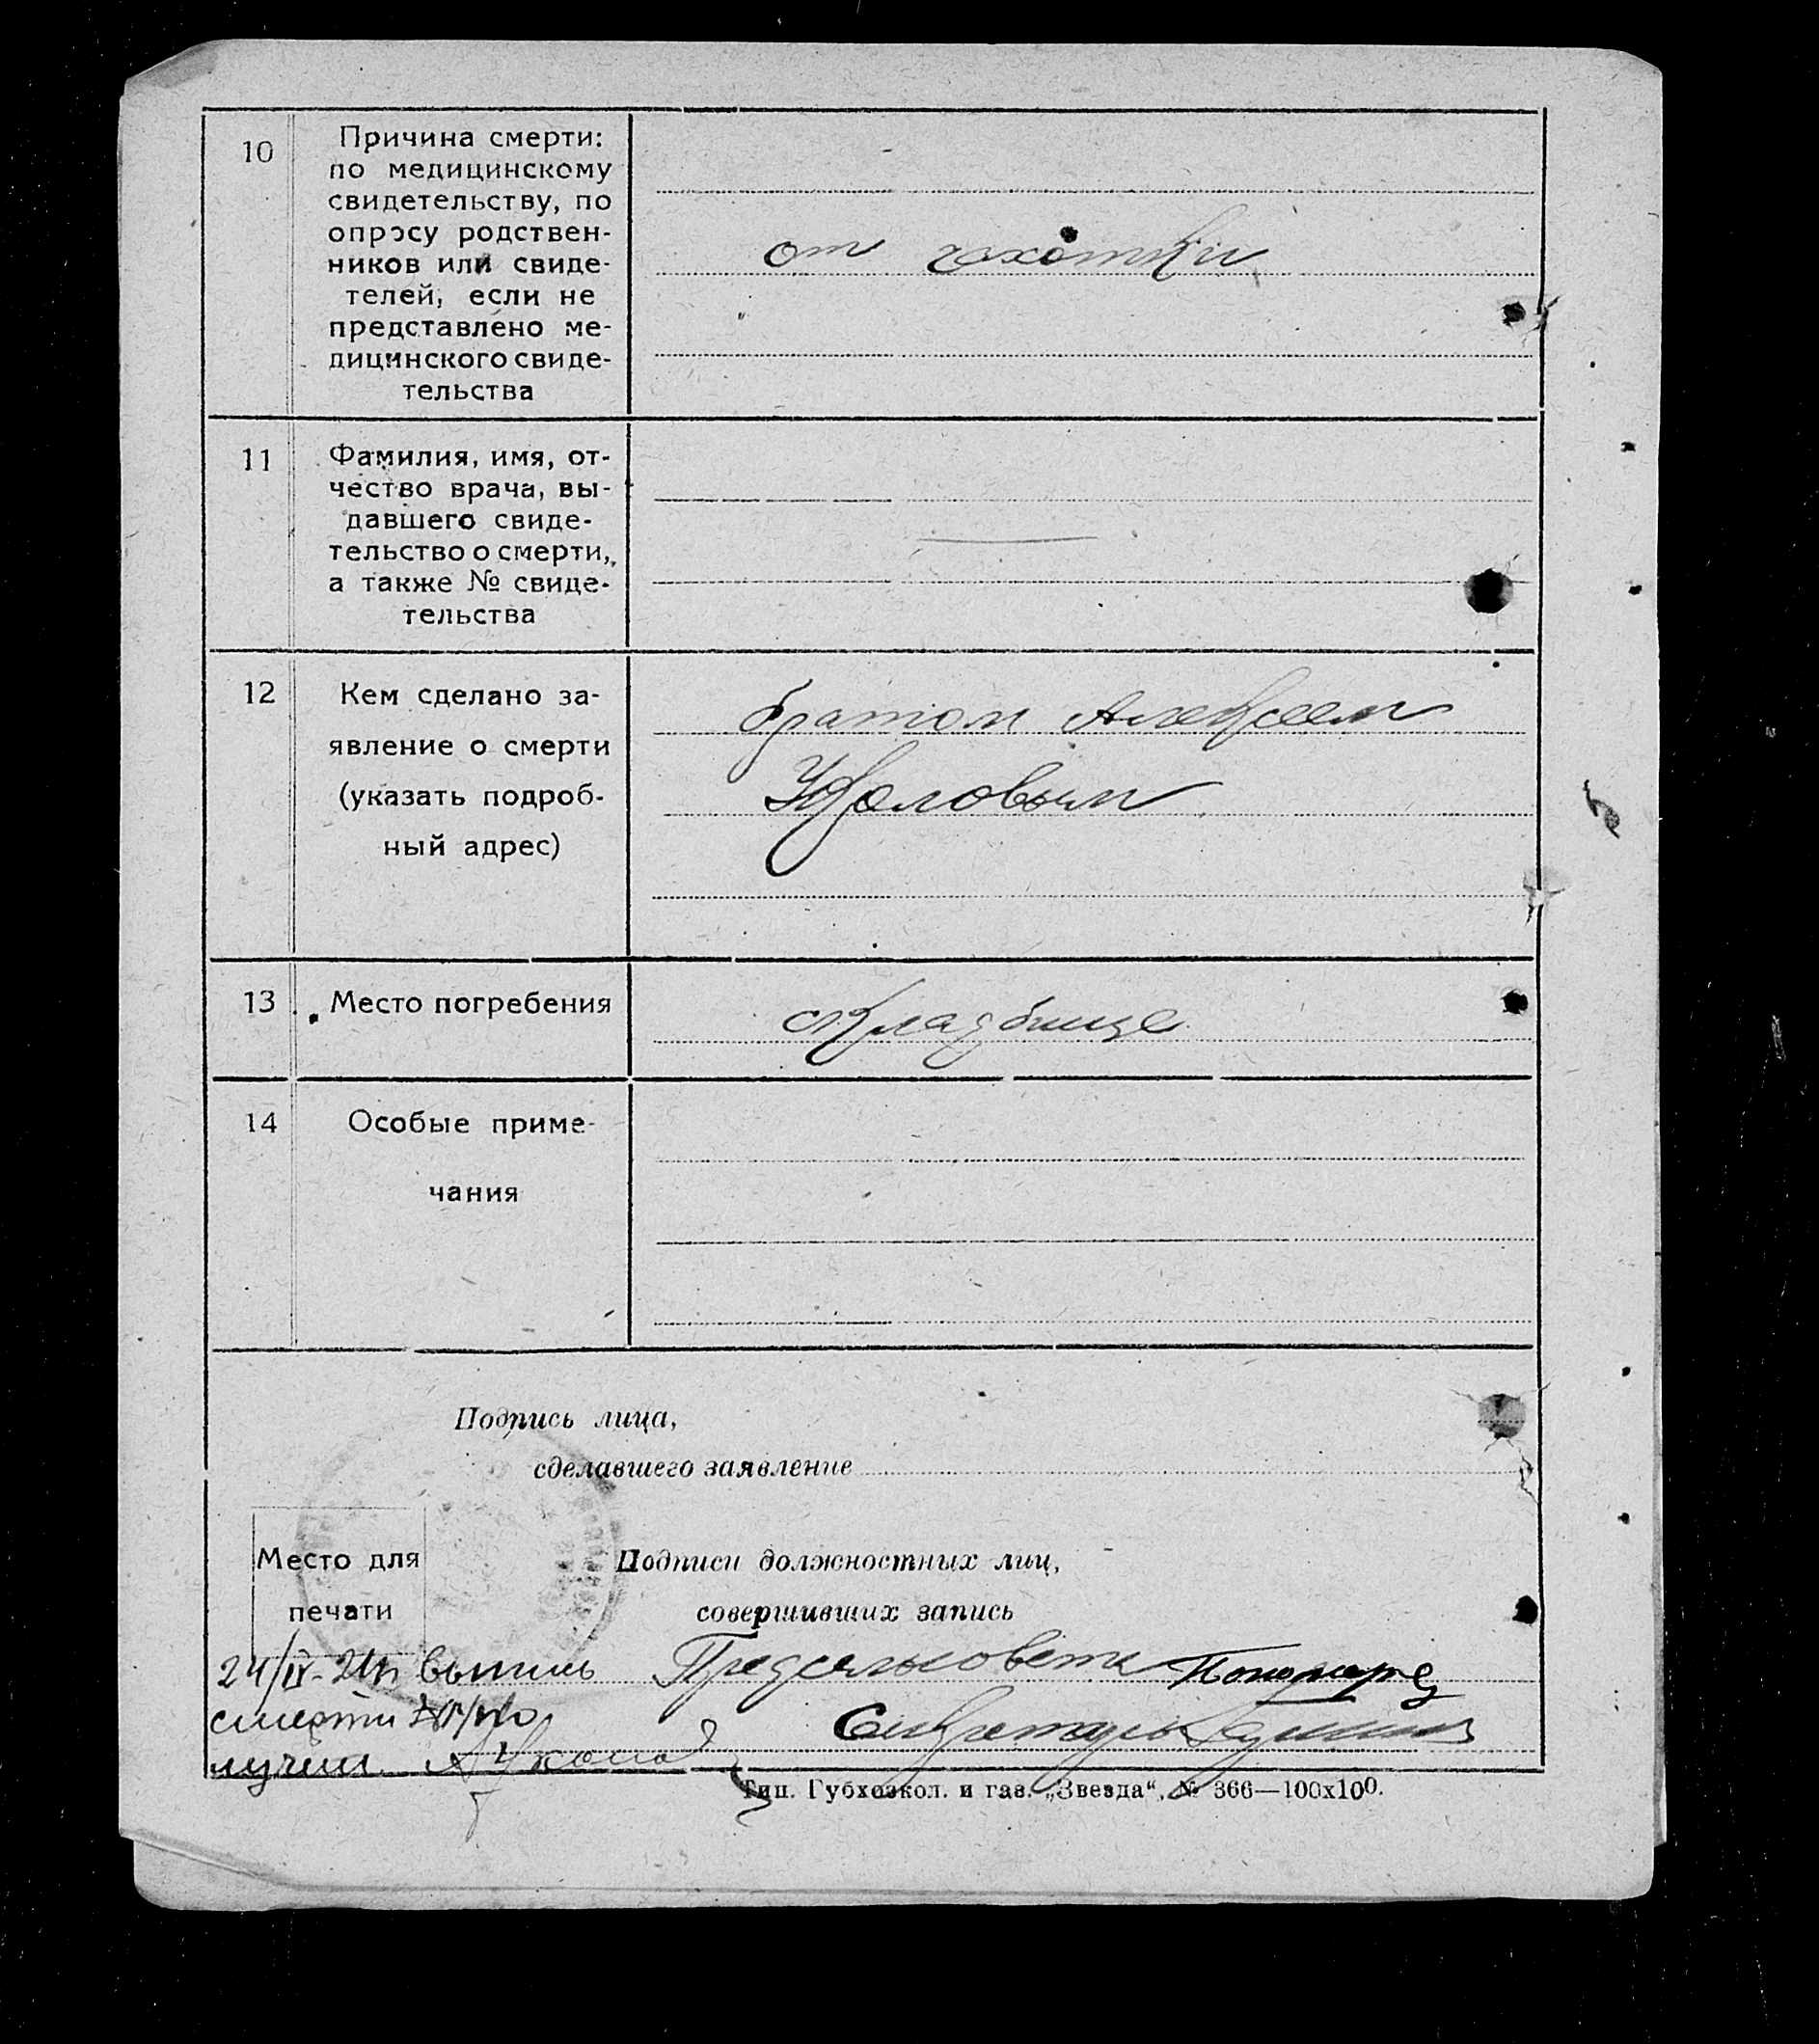 10
Причина смерти:
по медицинскому
свидетельству, по
опросу родствен-
ников или свиде-
телей, если не
представлено ме-
дицинского свиде-
тельства
от чахотки
11
Фамилия, имя, от-
чество врача, вы-
давшего свиде-
тельство о смерти,
а также № свиде-
тельства
12
Кем сделано за-
явление о смерти
(указать подроб-
ный адрес)
братом Алексеем
13
Место погребения
кладбище
14
Особые приме-
чания
Подпись лица,
сделавшего заявление
Место для
печати
Подписи должностных лиц,
совершивших запись
24/IV-24 выпись
Предсельсовета
смерти
Секретарь
лучил
Тип. Губхозкол. и газ. „Звезда“, № 366—100х100.